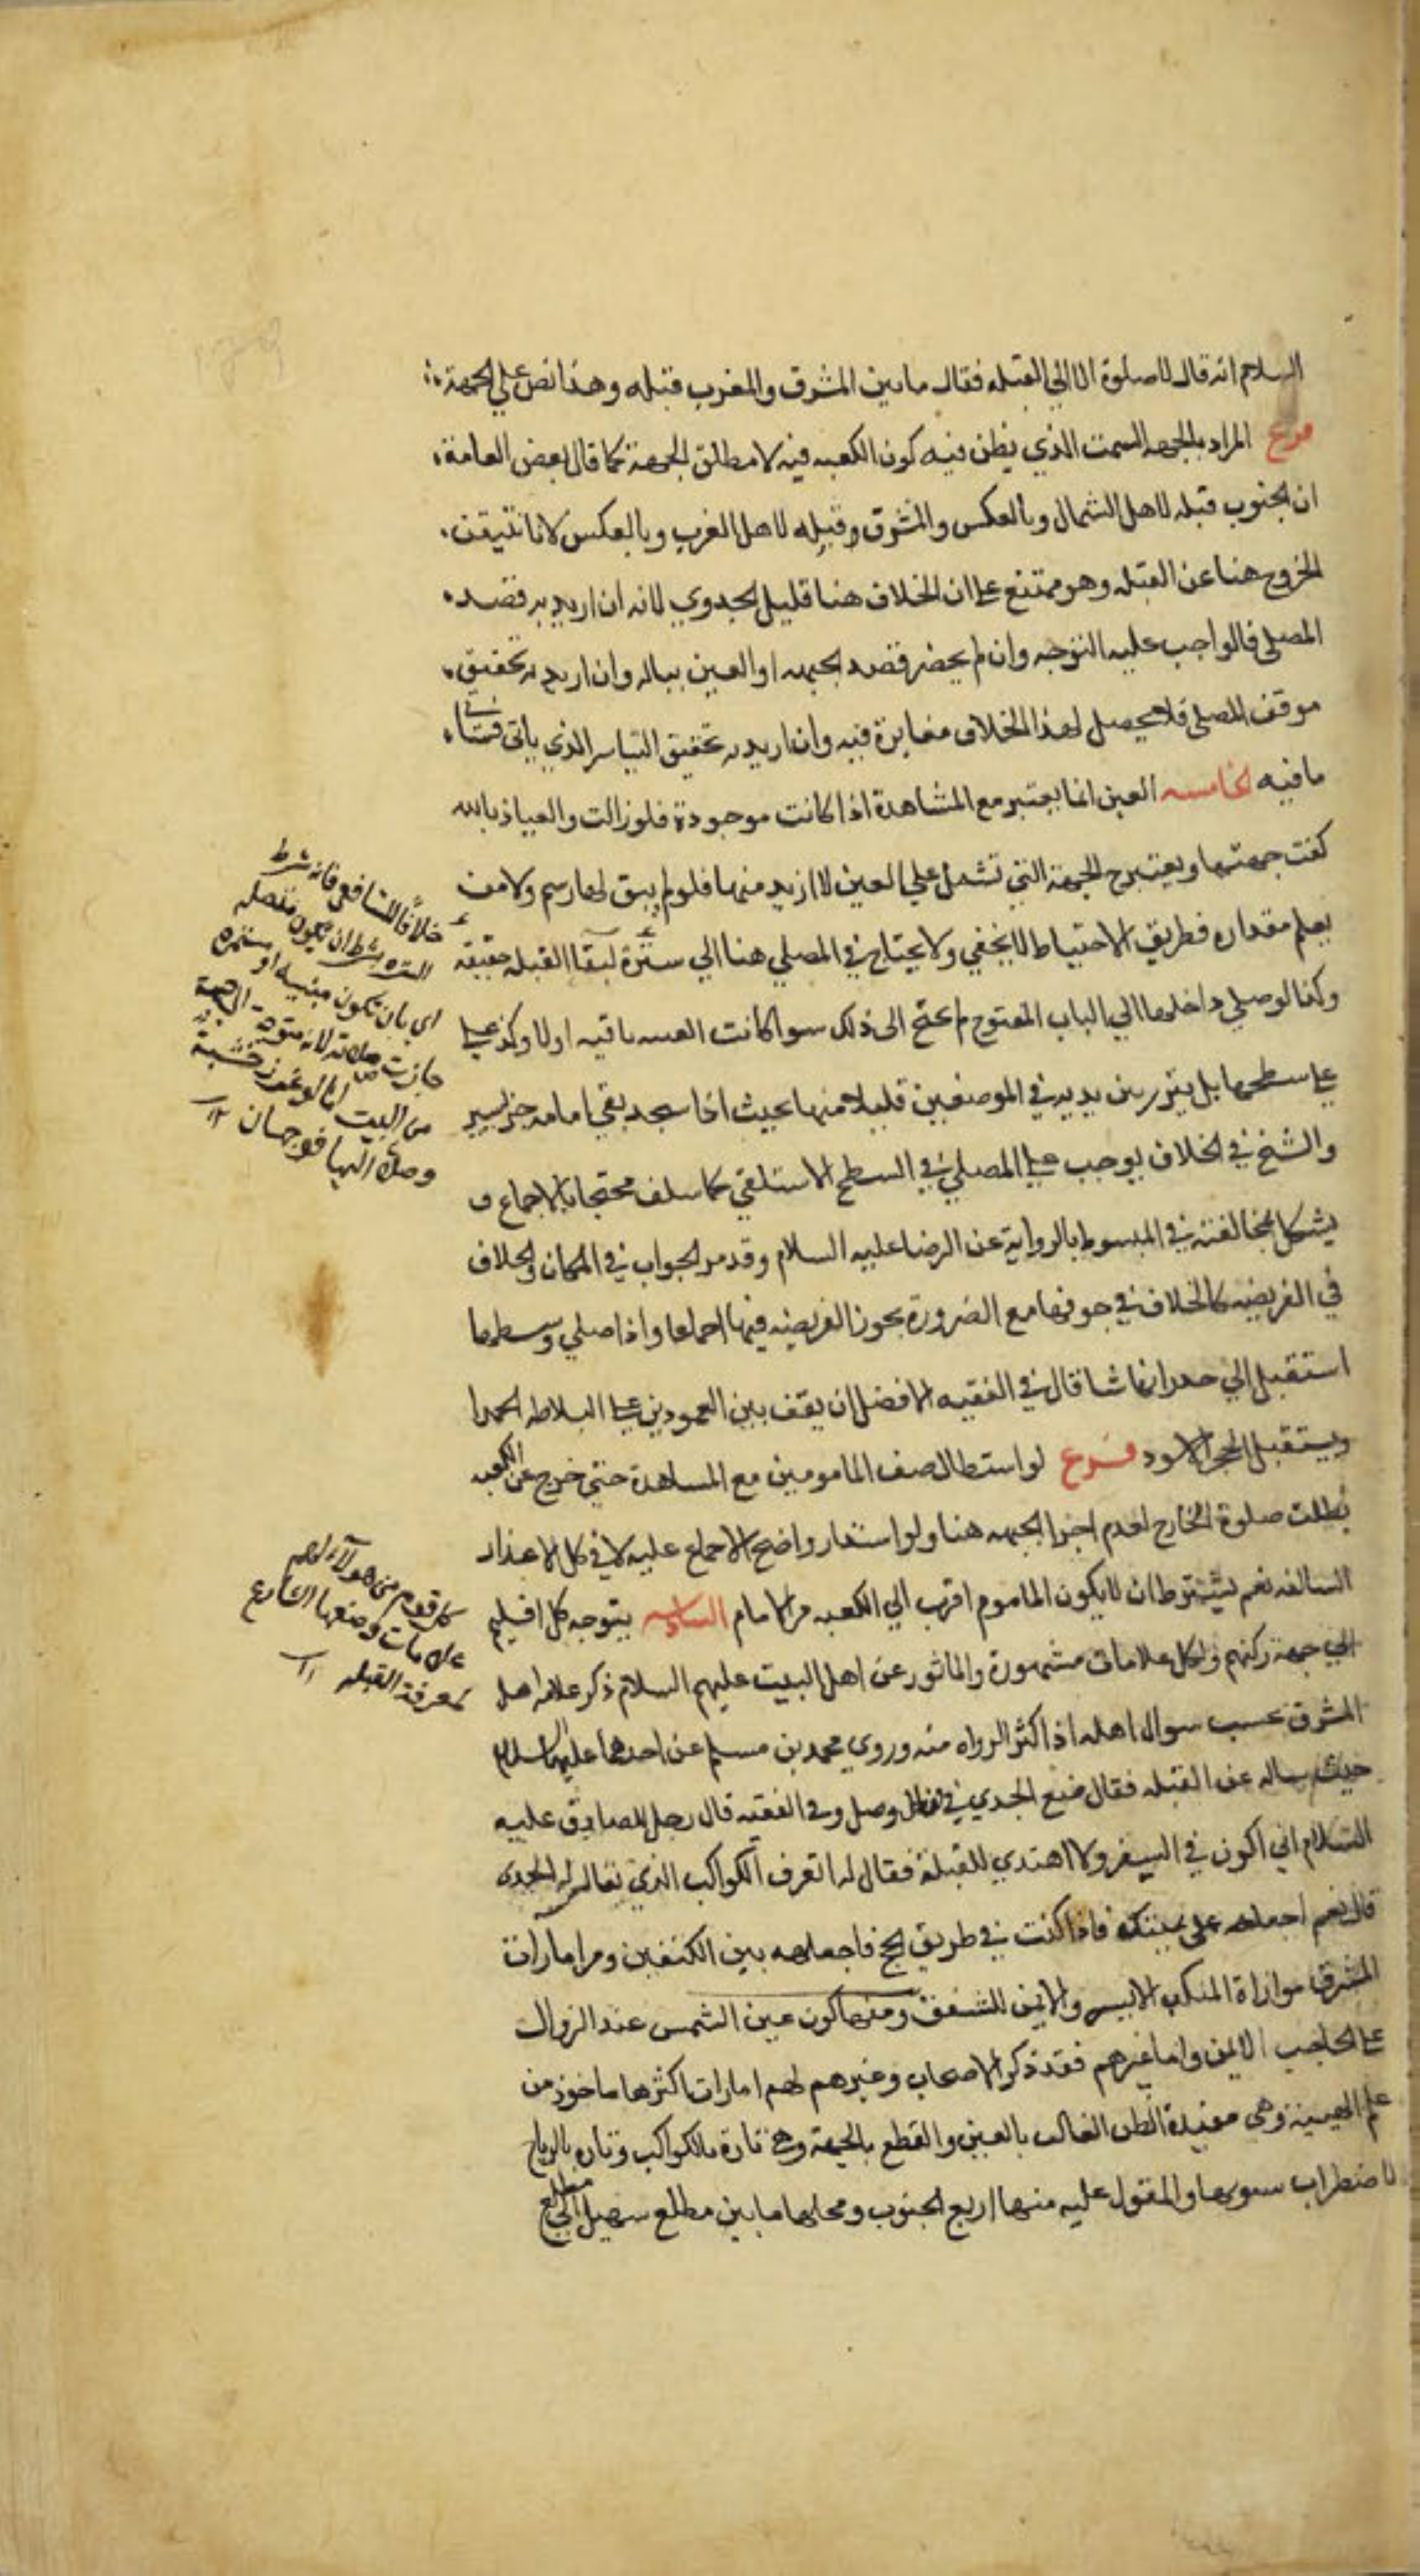 السلام انه قال لا صلوة الا الي القبله فقال ما بين المشرق والمغرب قبله وهذا نص علي الجهة
فرع المراد بالجهه السمت الذي يظن فيه كون الكعبه فيه لا مطلق الجهة كما قال بعض العامة
ان الجنوب قبله لاهل الشمال وبالعكس والمشرق وقبله لاهل الغرب وبالعكس لانا نتيقن
الخروج هنا عن القبله وهو ممتنع علي ان الخلاف هنا قليل الجدوي لانه ان اريد به قصد
المصلي فالواجب عليه التوجه وان لم يحضر قصد الجهه او العين بباله وان اريد به تحقيق
موقف المصلي فلا يحصل لهذا الخلاف مغايرة فيه وان اريد به تحقيق التياسر الذي ياتي
ما فيه الخامسه العين انما يعتبر مع المشاهدة اذا كانت موجودة فلو زالت والعياذ بالله
كفت جهتها ويعتبر ح الجهة التي تشمل علي العين لا ازيد منها فلو لم يبق لها رسم ولا من
يعلم مقداره فطريق الاحتياط لا يخفي ولا يحتاج في المصلي هنا الي سترة لبقا القبله حقيقه
وكذا لو صلي داخلها الي الباب المفتوح لم يحتج الى ذلك سوا كانت العتبه باقيه او لا وكذ علي
علي سطحها بل يبرز بين يديه في الموضعين قليلا منها بحيث اذا سجد بقي امامه جز يسير
والشيخ في الخلاف يوجب علي المصلي في السطح الاستلقي كما سلف محتجا بالاجماع و
يشكل بمخالفته في المبسوط بالرواية عن الرضا عليه السلام وقد مر الجواب في المكان والخلاف
في الفريضه كالخلاف في جوفها مع الضرورة يجوز الفريضه فيها اجماعا واذا صلي وسطها
استقبل الي جدرانها شا قال في الفقيه الافضل ان يقف بين العمودين علي البلاطه الحمرا
ويستقبل الحجر الاسود فرع لو استطال صف المامومين مع المساهدة حتي خرج عن الكعبه
بطلت صلوة الخارج لعدم اجزا الجهه هنا ولو استدار واضح الاجماع عليه لا في كل الاعذار
السالفه نعم يشترط ان لا يكون الماموم اقرب الي الكعبه من الامام السادسه يتوجه كل اقليم
الي جهة ركنهم ولكل علامات مشهورة والماثور عن اهل البيت عليهم السلام ذكر علامه اهل
المشرق بحسب سوال اهله اذا كثر الرواه منه وروي محمد بن مسلم عن احدهما عليهما السلام
حيث ساله عن القبله فقال ضع الجدي في قفاك وصل وفي الفقيه قال رجل للصادق عليه
السلام اني اكون في السفر ولا اهتدي للقبلة فقال له اتعرف الكواكب الذي يقال له الجدي
قال نعم اجعله علي يمينك فاذا كنت في طريق الحج فاجعله بين الكتفين ومن امارات
المشرق موازاة المنكب الايسر والايمن للشفق ومنها كون عين الشمس عند الزوال
علي الحاجب الايمن واما غيرهم فقد ذكر الاصحاب وغيرهم لهم امارات اكثرها ماخوذ من
علم الهيئة وهي مفيدة الظن الغالب بالعين والقطع بالجهة وهي تارة بالكواكب وتاره بالرياح
لاضطراب سموتها والمقول عليه منها اربع الجنوب ومحلها ما بين مطلع سهيل الي مطلع
خلافا للشافعي فانه شرط
السترة بشرط ان يكون متصله
اي بان تكون مبنيه او مستمره
جازت صلاته لانه متوجه الي جهة
من البيت اما لو غرز خشبة
وصلي اليها فوجهان ١٢
كل قوم من هولآء لهم
علامات وضعها الشارع
لمعرفة القبله ١٢